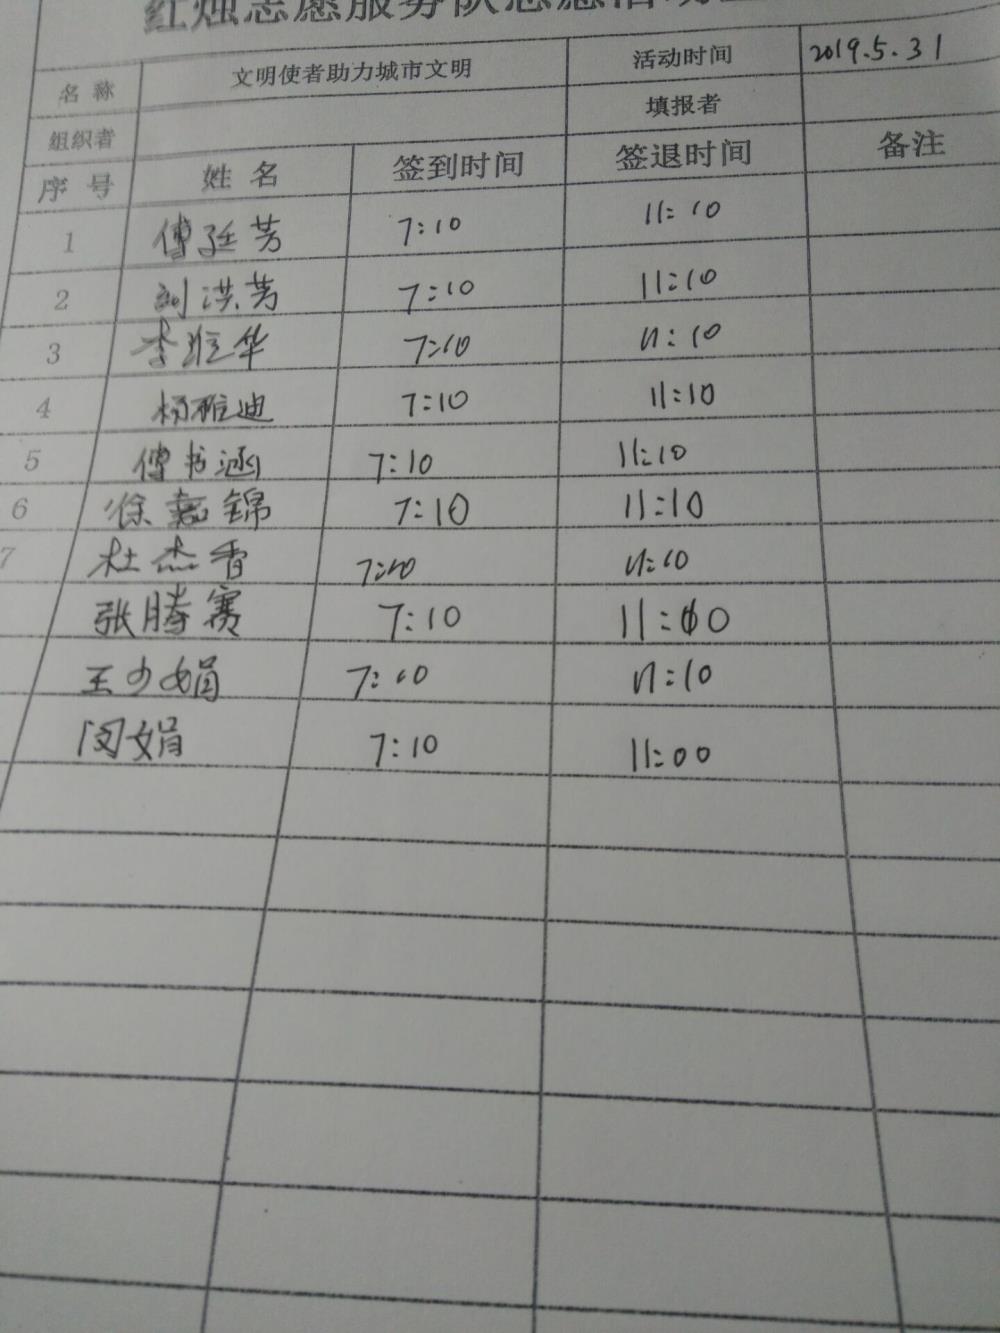 红烛志愿服务队志愿活动
名称 文明使者助力城市文明 活动时间 2019.5.31
组织者 填报者
序号 姓名 签到时间 签退时间 备注
1 傅廷芳 7:10 11:10
2 刘洪芳 7:10 11:10
3 李 华 7:10 11:10
4 杨雅迪 7:10 11:10
5 傅书涵 7:10 11:10
6 徐嘉锦 7:10 11:10
7 杜杰香 7:10 11:10
张腾赛 7:10 11:00
王少娟 7:10 11:10
闵娟 7:10 11:00